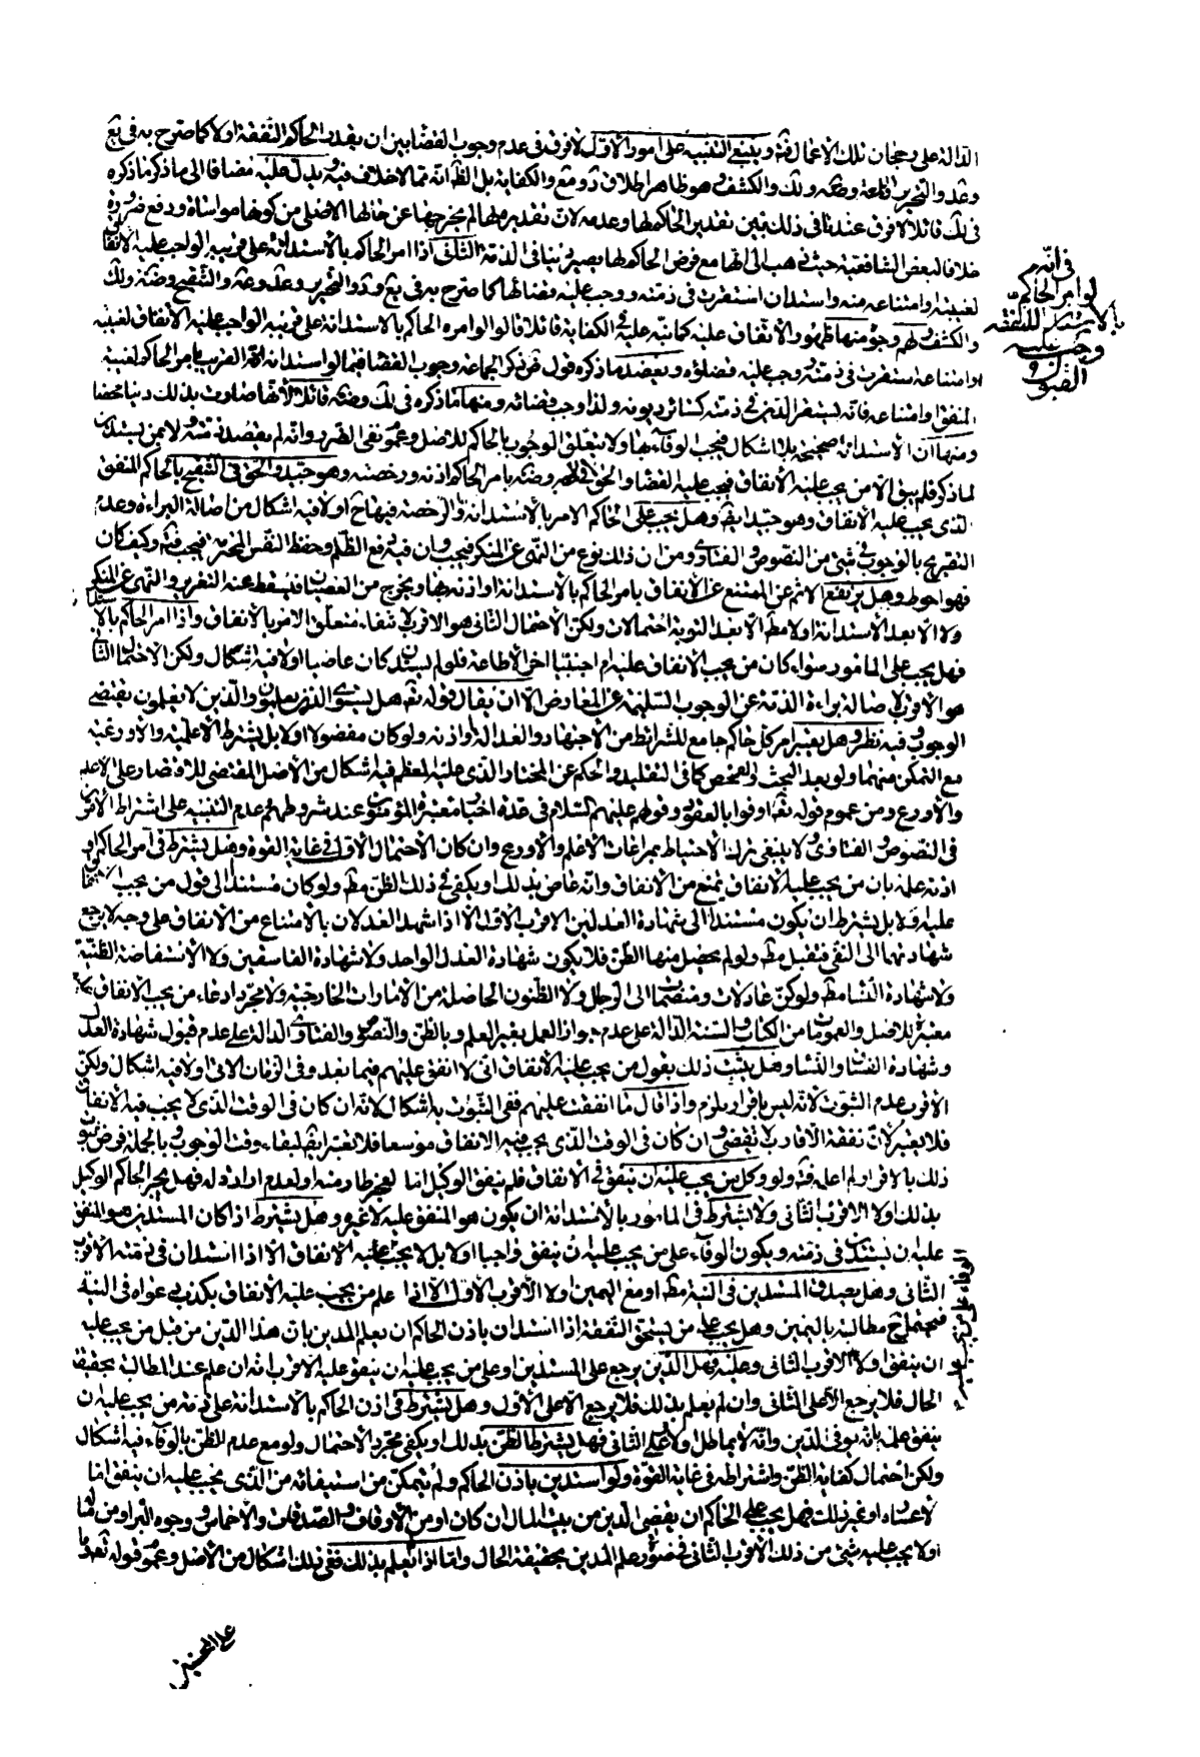 الدالة على رجحان تلك الاعمال فت وينبغى التنبيه على امور الاول لا فرق فى عدم وجوب القضاء بين ان يقدر الحاكم النفقة اولا كما صرح به فى يع
وعد والتحرير والكشف وهو ظاهر اطلاق والكفاية بل الظ انه مما لا خلاف فيه ويدل عليه مضافا الى ما ذكر ما ذكره
فى لك قائلا لا فرق عندنا فى ذلك بين تقدير الحاكم لها وعدمه لان تقديره لها لم يخرجها عن حالها الاصلى من كونها مواساة ودفع ضرورة
خلافا لبعض الشافعية حيث ذهب الى انها مع فرض الحاكم لها يصير دينا فى الذمة الثانى اذا امر الحاكم بالاستدانة على قريبه الواجب عليه الانفاق
لغيبته وامتناعه منه واستدان استقرت فى ذمته ووجب عليه قضائها كما صرح به فى يع والتحرير وعد والتنقيح وضه ولك
والكشف لهم وجوه منها ظهور الاتفاق عليه كما نبه عليه فى الكفاية قائلا قالوا لو امره الحاكم بالاستدانة على قريبه الواجب عليه الانفاق لغيبته
او امتناعه استقرت فى ذمته ووجب عليه قضاؤه ويعضد ما ذكره قول
المنفق او امتناعه فانه يستقر الدين فى ذمته كسائر ديونه ولذا وجب قضائه ومنها ما ذكره فى لك وضه قائلا لانها صارت بذلك دينا
ومنها ان الاستدانة صحيحة بلا اشكال فيجب الوفاء بها ولا يتعلق الوجوب بالحاكم للاصل وعموم نفى الضرر وانه لم يقصد ذمته ولا من يستدين
لما ذكر فلم يبق الا من يجب عليه الانفاق فيجب عليه القضاء والحق فى وضه بامر الحاكم اذنه ورخصته وهو جيد والحق فى التنقيح بالحاكم المنفق
الذى يجب عليه الانفاق وهو جيد ايض وهل يجب على الحاكم الامر بالاستدانة والرخصة فيها ح او لا فيه اشكال من اصالة البراءة وعدم
التصريح بالوجوب فى شئ من النصوص والفتاوى ومن ان ذلك نوع من النهى عن المنكر فيجب وان فيه رفع الظلم وحفظ النفس المحترمة فيجب فت وكيف كان
فهو احوط وهل يرتفع الاثم عن الممتنع عن الانفاق بامر الحاكم بالاستدانة او اذنه بها ويخرج من العصيان فيسقط عنه التعزير والنهى عن المنكر
ولا الا بعد الاستدانة اولا مط الا بعد التوبة احتمالات ولكن الاحتمال الثانى هو الاقرب لانتفاء متعلق الامر بالانفاق واذا امر الحاكم بالاستدانة
فهل يجب على المامور سواء كان من يجب الانفاق عليه ام اجنبيا اخر الاطاعة فلو لم يستدن كان عاصيا اولا فيه اشكال ولكن الاحتمال الثانى
هو الاقرب لاصالة براءة الذمة عن الوجوب السليمة عن المعارض الا ان يقال قوله تع هل يستوى الذين يعلمون والذين لا يعلمون يقتضى
الوجوب وفيه نظر وهل يعتبر امر كل حاكم جامع للشرائط من الاجتهاد والعدالة او اذنه ولو كان مفضولا اولا بل يشترط الاعلمية والاورعية
مع التمكن منهما ولو بعد البحث والفحص كما فى التقليد والحكم عن المختار والذى عليه المعظم فيه اشكال من الاصل المقتضى للاقتصار على الاعلم
والاورع ومن عموم قوله تع اوفوا بالعقود وقولهم عليهم السلام فى عدة اخبار معتبرة المؤمنون عند شروطهم وعدم التنبيه على اشتراط الامرين
فى النصوص والفتاوى لا ينبغى ترك الاحتياط بمراعات الاعلم والاورع وان كان الاحتمال الاول فى غاية القوة وهل يشترط فى امر الحاكم او
اذنه علمه بان من يجب عليه الانفاق يمتنع من الانفاق وانه عاص بذلك او يكفى فى ذلك الظن مط ولو كان مستندا الى قول من يجب الانفاق
عليه اولا بل يشترط ان يكون مستندا الى شهادة العدلين الاقرب الاول الا اذا شهد العدلان بالامتناع من الانفاق على وجه لا يرجع
شهادتهما الى النفى فتقبل مط ولو لم يحصل منها الظن فلا يكون شهادة العدل الواحد ولا شهادة الفاسقين ولا الاستفاضة الظنية
ولا شهادة النساء مط ولو كن عادلات ومنضمات الى الرجل ولا الظنون الحاصلة من الامارات الخارجية ولا مجرد ادعاء من يجب الانفاق عليه
معتبرة للاصل والعمومات من الكتاب والسنة الدالة على عدم جواز العمل بغير العلم وبالظن والنصوص والفتاوى الدالة على عدم قبول شهادة العدل
وشهادة الفساق والنساء وهل يثبت ذلك بقول من يجب عليه الانفاق انى لا انفق عليهم فيما بعد وفى الزمان الاتى اولا فيه اشكال ولكن
الاقرب عدم الثبوت لانه ليس باقرار يلزم واذا قال ما انفقت عليهم ففى الثبوت به اشكال لانه ان كان فى الوقت الذى لا يجب فيه الانفاق
فلا يعتبر لان نفقة الاقارب لا تقضى وان كان فى الوقت الذى يجب فيه الانفاق موسعا فلا يعتبر ايض لبقاء وقت الوجوب وبالجملة فرض ثبوت
ذلك بالاقرار لم اعلمه فت ولو وكل من يجب عليه ان ينفق فى الانفاق فلم ينفق الوكيل اما لعجز طار منه او لعدم ارادة له فهل يجبر الحاكم الوكيل
بذلك اولا الاقرب الثانى ولا يشترط فى المامور بالاستدانة ان يكون هو المنفق عليه لا غيره وهل يشترط اذا كان المستدين هو المنفق
عليه ان يستدين فى ذمته ويكون الوفاء على من يجب عليه ان ينفق واجبا اولا بل لا يجب عليه الانفاق الا اذا استدان فى ذمته الاقرب
الثانى وهل يصدق المستدين فى النية مط او مع اليمين اولا الاقرب الاول الا اذا علم من يجب عليه الانفاق بكذب دعواه فى النية
فيحتمل ح مطالبته باليمين وهل يجب على من يستحق النفقة اذا استدان باذن الحاكم ان يعلم المدين بان هذا الدين من قبل من يجب عليه
ان ينفق اولا الاقرب الثانى وعليه فهل الدين يرجع على المستدين او على من يجب عليه ان ينفق عليه الاقرب انه ان علم عند المطالبة بحقيقة
الحال فلا يرجع الا على الثانى وان لم يعلم بذلك فلا يرجع الا على الاول وهل يشترط فى اذن الحاكم بالاستدانة على ذمته من يجب عليه ان
ينفق علمه بانه يوفى الدين وانه لا يماطل اولا وعلى الثانى فهل يشترط الظن بذلك او يكفى مجرد الاحتمال ولو مع عدم الظن بالوفاء فيه اشكال
ولكن احتمال كفاية الظن واشتراطه فى غاية القوة ولو استدين باذن الحاكم ولم يتمكن من استيفائه من الذى يجب عليه ان ينفق اما
لاعساره او غير ذلك فهل يجب على الحاكم ان يقضى الدين من بيت المال ان كان او من الاوقاف والصدقات والاخماس ووجوه البر او من
اولا يجب عليه شئ من ذلك الاقرب الثانى فى صورة علم المدين بحقيقة الحال واما اذا لم يعلم بذلك ففى ذلك اشكال من الاصل وعموم قوله تع
فى انه
لو امر الحاكم
بالاستدانة للنفقة
وجب عليه
القبول